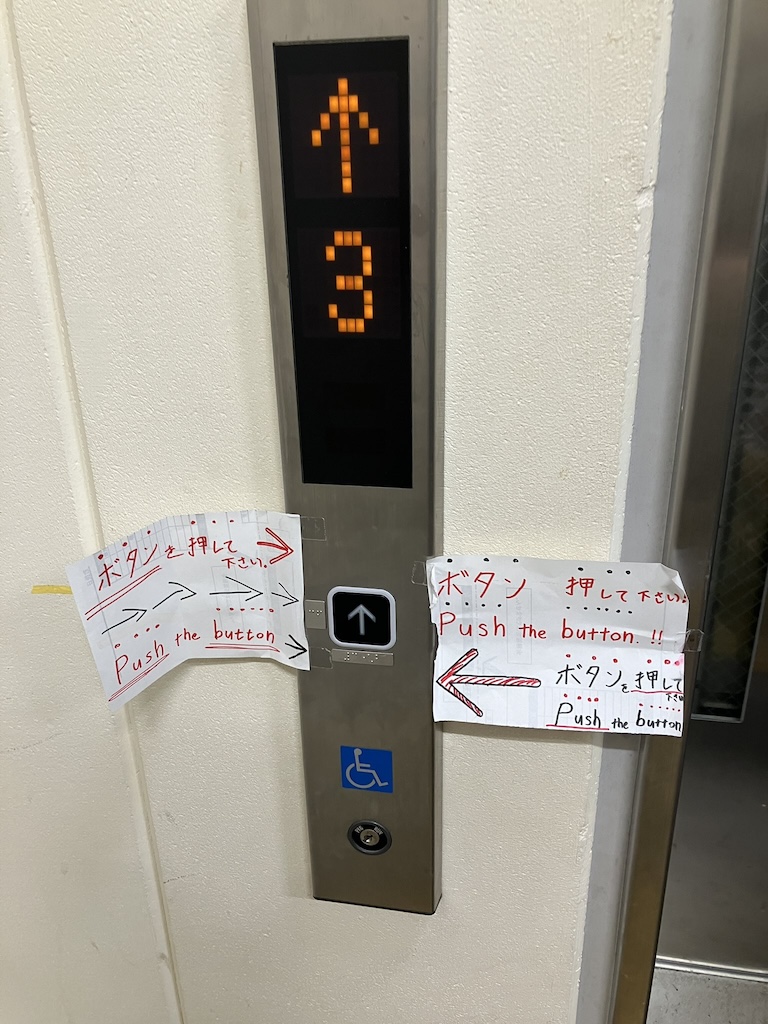 3
ボタンを押して
下さい。
Push the button
ボタン 押して下さい。
Push the button !!
ボタンを押して
下さい
Push the button